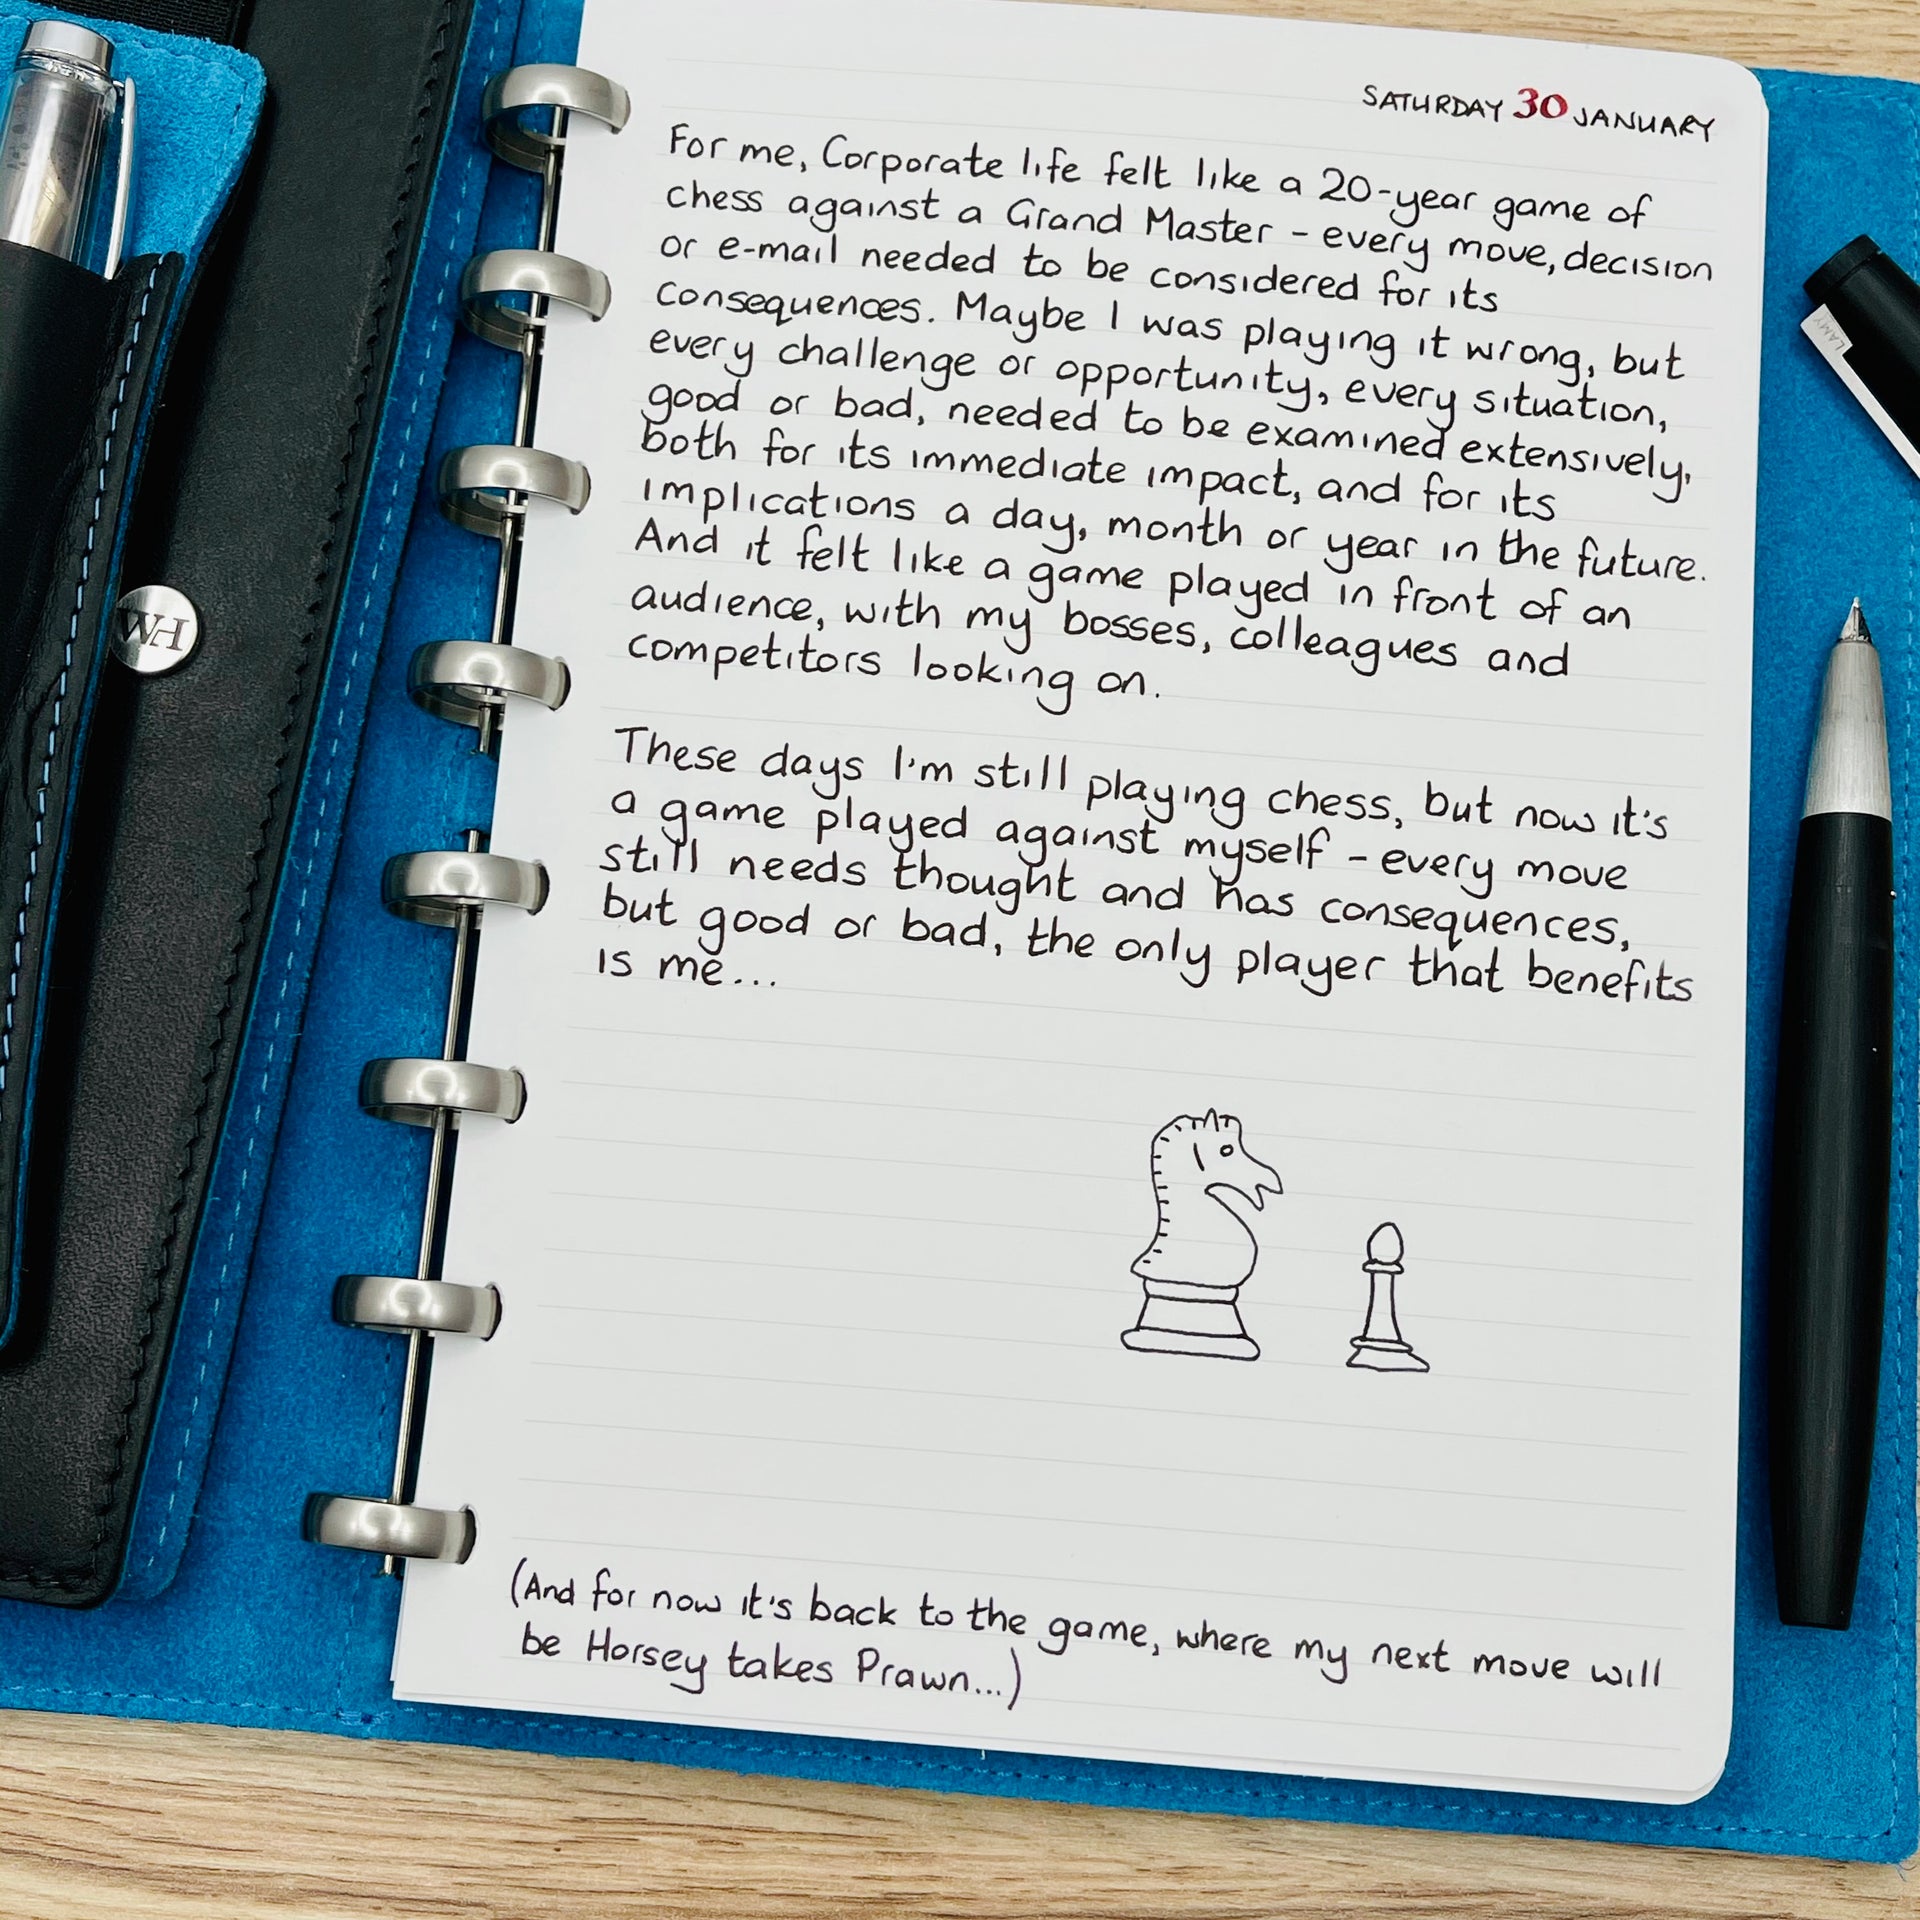 SATURDAY 30 JANUARY
For me, Corporate life felt like a 20-year game of
chess against a Grand Master - every move, decision
or e-mail needed to be considered for its
consequences. Maybe I was playing it wrong, but
every challenge or opportunity, every situation,
good or bad, needed to be examined extensively,
both for its immediate impact, and for its
implications a day, month or year in the future.
And it felt like a game played in front of an
audience, with my bosses, colleagues and
competitors looking on.
These days I'm still playing chess, but now it's
a game played against myself - every move
still needs thought and has consequences,
but good or bad, the only player that benefits
is me...
(And for now it's back to the game, where my next move will
be Horsey takes Prawn...)
WH
LAMY